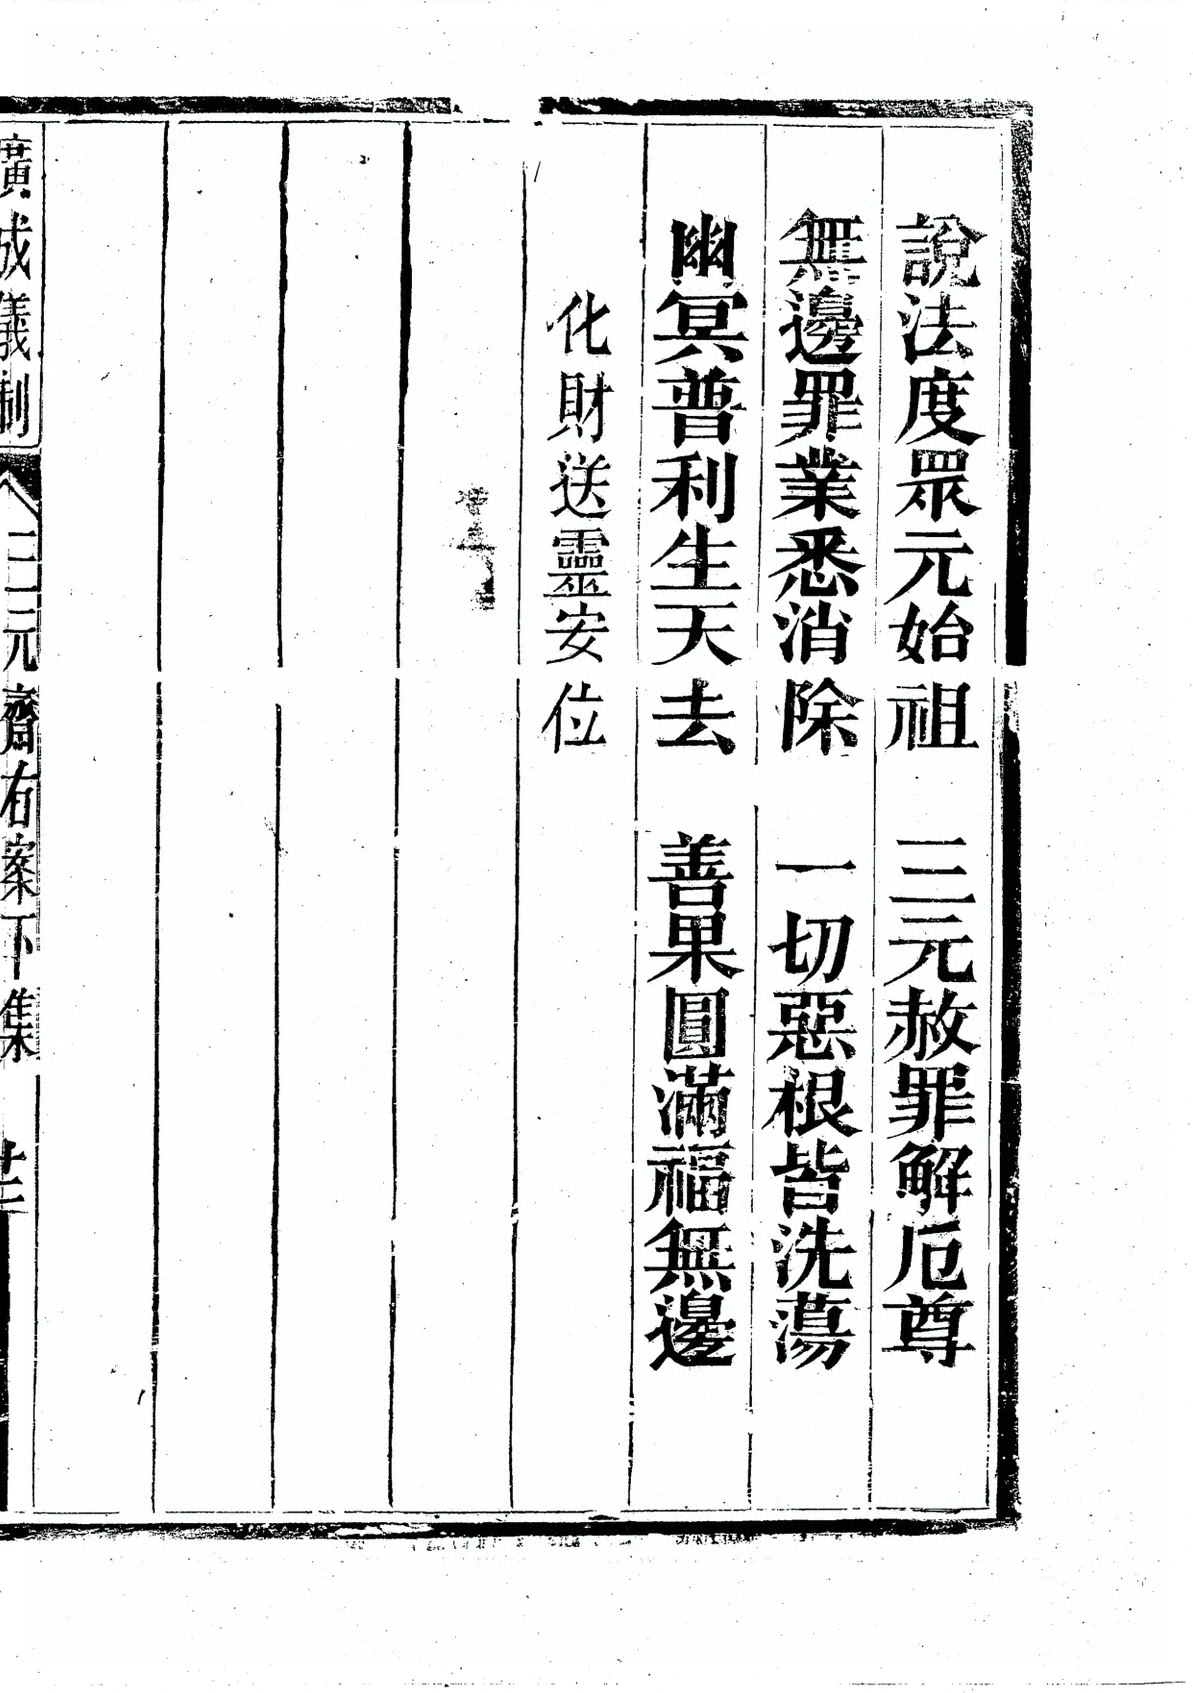 說法度眾元始祖　三元赦罪解厄尊
無邊罪業悉消除　一切惡根皆洗蕩
幽冥普利生天去　善果圓滿福無邊
化財送靈安位
廣成儀制　三元齋右案下集　廿三